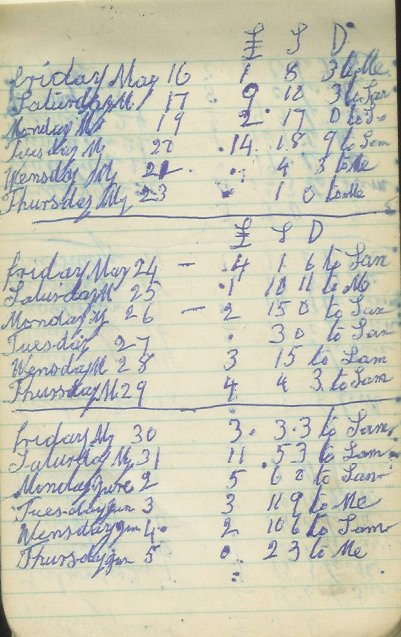 £ S D
Friday May 16 1 8 3 to Me
Saturday M 17 9 12 3 to Sam
Monday M 19 2 17 0 to
Tuesday M 20 14 18 9 to Sam
Wensday My 21 4 3 to Me
Thursday My 23 1 0 to Me
£ S D
Friday May 24 — 4 1 6 to Sam
Saturday M 25 1 10 11 to Me
Monday M 26 — 2 15 0 to Sam
Tuesday 27 3 0 to Sam
Wensday M 28 3 15 to Sam
Thursday M 29 4 4 3 to Sam
Friday My 30 3 3.3 to Sam
Saturday M 31 11 5 3 to Sam
Monday June 2 5 6 to Sam
Tuesday Jun 3 3 11 9 to Me
Wensday Jun 4 2 10 6 to Sam
Thursday Jun 5 0 2 3 to Me